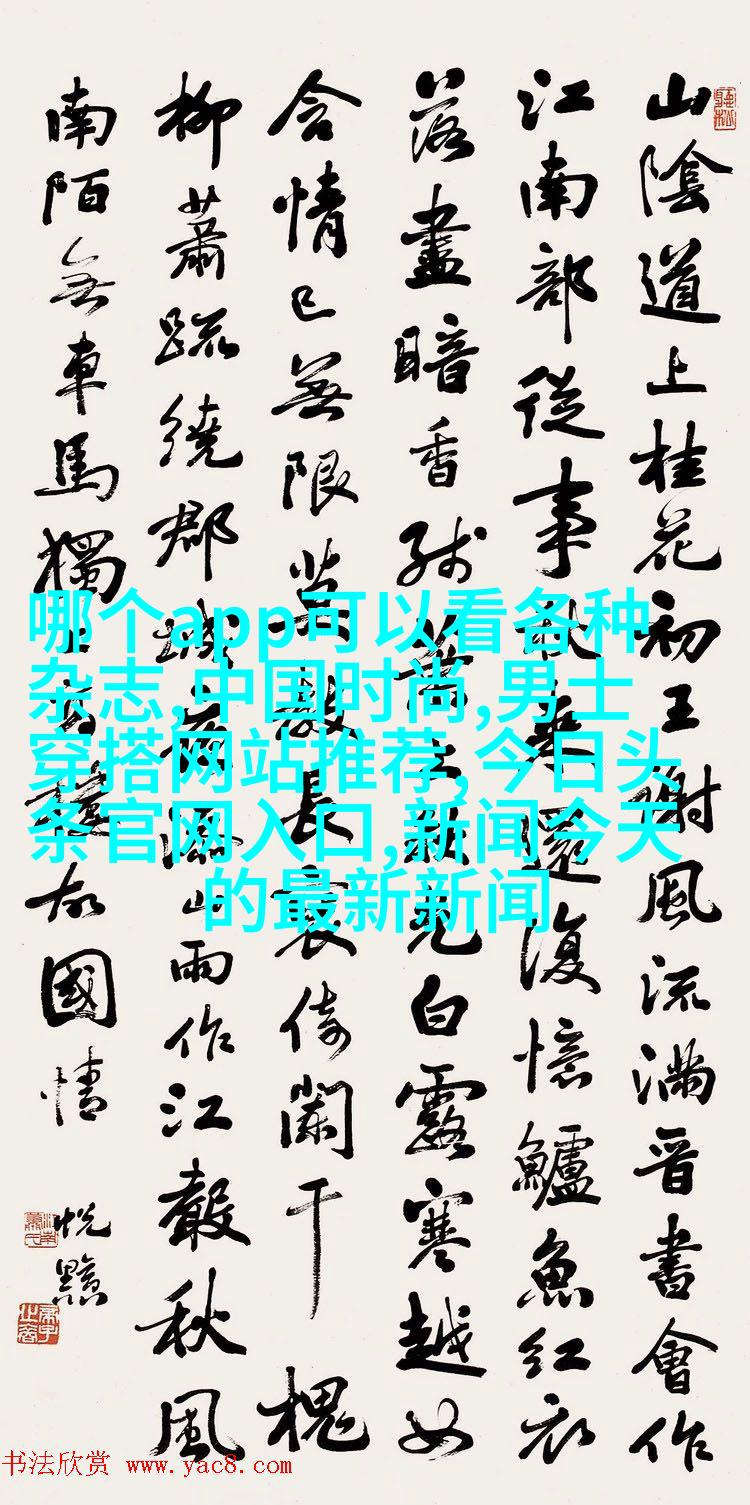 山陰道上桂花初王謝風流滿晉書會作
江南部從事秋來還復憶鱸魚紅衣
落盡暗香殘葉上秋光白露寒越女
含情已無限莫教長袖倚闌干槐
柳蕭疏繞郡城夜添山雨作江聲秋風
南陌無車馬獨上高樓故國情
哪个app可以看各种
杂志,中国时尚,男士
穿搭网站推荐,今日头
条官网入口,新闻今天
的最新新闻
书法欣赏 www.yac8.com